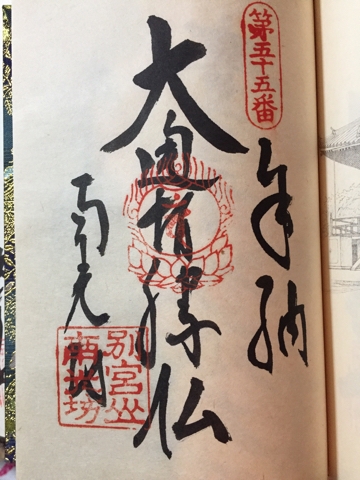 第五十五番
奉納
大通智勝仏
南光坊
別宮山
南光坊